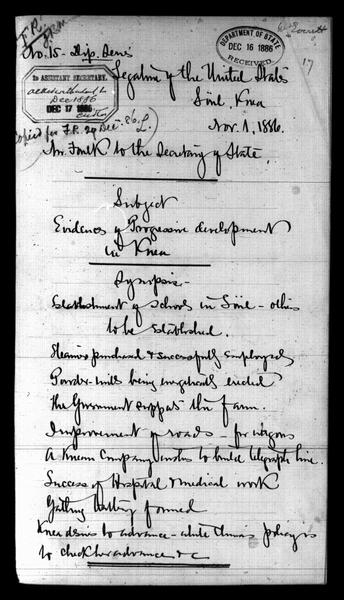 No. 15 - Dip. Series
DEPARTMENT OF STATE
DEC 16 1886
RECEIVED
17
2D ASSISTANT SECRETARY.
Dec 1886
DEC 17 1886
Copied for F.R. 29 Dec. 86. L.
Legation of the United States
Söul, Korea
Nov. 1, 1886.
Mr. Foulk to the Secretary of State
Subject
Evidences of Progressive development
in Korea
Synopsis -
Establishment of schools in Söul - others
to be established.
Steamers purchased & successfully employed
Powder-mills being energetically erected
The Government supports the farm.
Improvement of roads - for wagons
A Korean Company wishes to build telegraph line.
Success of Hospital & medical work
Gatling battery formed
Korea desires to advance - while China's policy is
to check her advance &c